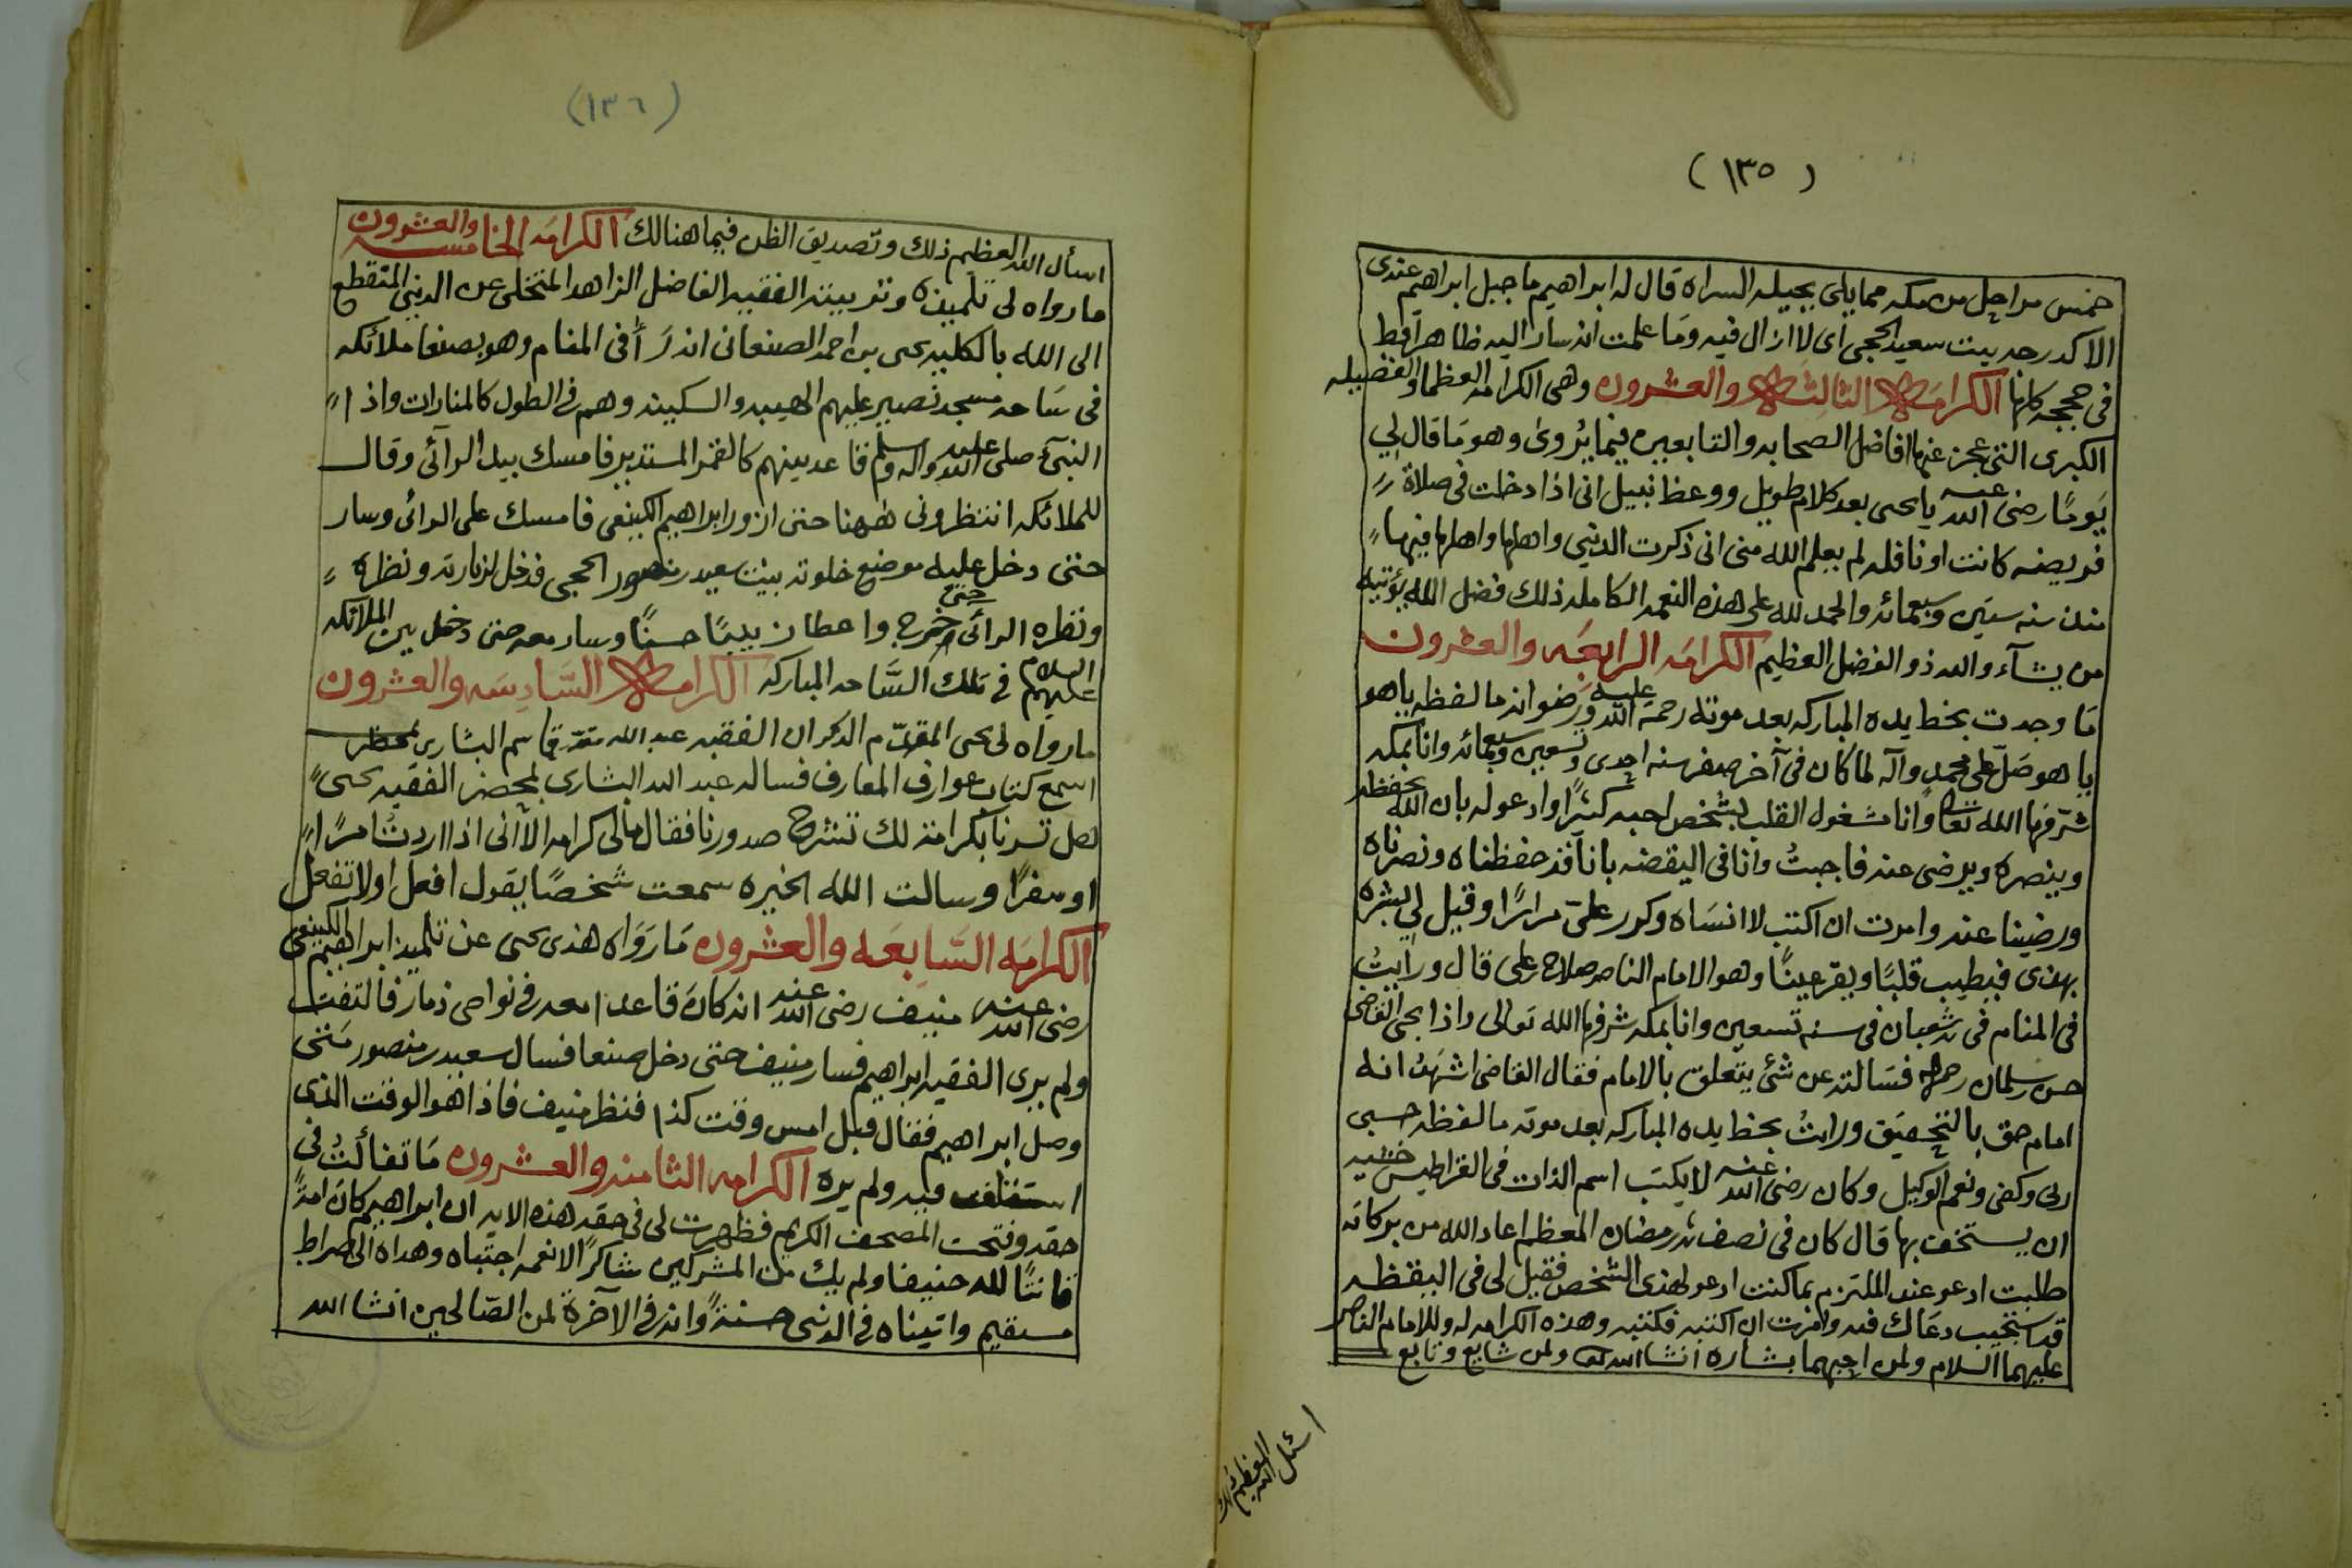 (١٣٥)
خمس مراحل من مكه مما يلي بجيله السراه قال له ابراهيم ما جبل ابراهيم عندى
الا كدرجه بيت سعيد الحجى اى لا ازال فيه وما علمت انه سار اليه ظاهرا قط
فى حججه كلها الكرامه الثالثه والعشرون وهى الكرامه العظما والفضيله
الكبرى التى عجز عنها افاضل الصحابه والتابعين فيما يُروىٰ وهو ما قال لي
يومًا رضى الله عنه يا يحى بعد كلام طويل ووعظ نبيل انى اذا دخلت فى صلاة
فريضه كانت او نافله لم يعلم الله منى انى ذكرت الدنيى واهلها واهلها فيها
منذ سنه ستين وسبعمائه والحمد لله على هذه النعمه الكامله ذلك فضل الله يؤتيه
من يشآء والله ذو الفضل العظيم الكرامه الرابعه والعشرون
ما وجدت بخط يده المباركه بعد موته رحمة الله عليه ورضوانه ما لفظه يا هو
يا هو صَلّ على محمد وآله لما كان فى آخر صفر سنه احدى وتسعين وسبعمائه وانا بمكه
شرّفها الله تعالى وانا مشغول القلب بشخص احبه كثيرًا وادعو له بان الله يحفظه
وينصره ويرضى عنه فاجبتُ وانا فى اليقضه بانا قد حفظناه ونصرناه
ورضينا عنه وامرت ان اكتب لا انسَاه وكرر علىّ مرارًا وقيل لي بشره
بهذى فيطيب قلبًا ويقر عينًا وهو الامام الناصر صلاح بن على قال ورايتُ
فى المنام فى شعبان فى سنه تسعين وانا بمكه شرفها الله تعالى واذا بحى القاضى
حسن بن سلمان رحمه الله فسَالته عن شئ يتعلق بالامام فقال القاضى اشهَدُ انه
امام حق بالتحقيق ورايتُ بخط يده المباركه بعد موته ما لفظه حسبى
ربى وكفى ونعم الوكيل وكان رضى الله عنه لا يكتب اسم الذات فى القراطيس خشيه
ان يستخف بها قال كان فى نصف شهر رمضان المعظم اعاد الله من بركاته
طلبت ادعو عند الملتزم بما كنت ادعو لهذى الشخص فقيل لى فى اليقظه
قد استجيب دعَاك فيه وامرت ان اكتبه فكتبه وهذه الكرامه له وللامام الناصر
عليهما السلام ولمن احبهما بشاره انشا الله تعالى ولمن شايع وتابع
اسئل الله العظيم ذلك
(١٣٦)
اسأل الله العظيم ذلك وتصديق الظن فيما هنالك الكرامه الخامسه والعشرون
ما رواه لى تلميذه وتربيته الفقيه الفاضل الزاهد المتخلى عن الدنيى المتقطع
الى الله بالكليه يحى بن احمد الصنعانى انه رَأَى فى المنام وهو بصنعا ملائكه
فى سَاحه مسجد نصير عليهم الهيبه والسكينه وهم فى الطول كالمنارات واذا
النبىّ صلى الله عليه وآله وسلم قاعد بينهم كالقمر المستدير فامسك بيد الرآئى وقال
للملائكه انتظرونى ههنا حتى ازور ابراهيم الكينعى فامسك على الرائى وسار
حتى دخل عليه موضع خلوته بيت سعيد بن منصور الحجى فدخل لزيارته ونظره
ونظره الرائى حتى خرج واعطان بيبًا حسنًا وسار معه حتى دخل بين الملائكه
عليهم السلام فى تلك السَّاحه المباركه الكرامه السَّادِسَه والعشرون
ما رواه لى يحى المقدّم الذكر ان الفقيه عبد الله بن قاسم البشارى
اسمع كتاب عوارف المعارف فساله عبد الله البشارى بمحضر الفقيه يحى
هل تسرنا بكرامة لك تنشرح صدورنا فقال مالى كرامه الا انى اذا اردتُ امرًا
او سفرًا وسالت الله الخيره سمعت شخصًا يقول افعل او لا تفعل
الكرامَه السَّابِعَه والعشرون مَا رَوَاه هذى يحى عن تلميذ ابراهيم الكينعى
رضى الله عنه منيف رضى الله عنه انه كان قاعدا معه فى نواحى ذمار فالتفت
ولم يرى الفقيه ابراهيم فسار منيف حتى دخل صنعا فسال سعيد بن منصور متى
وصل ابراهيم فقال قبل امس وقت كذا فنظر منيف فاذا هو الوقت الذى
استقلف فيه ولم يره الكرامه الثامنه والعشرون مَا تفألتُ فى
حقه وفتحت المصحف الكريم فظهرت لى فى حقه هذه الايه ان ابراهيم كان امةً
قانتًا لله حنيفا ولم يك من المشركين شاكرًا لانعمه اجتباه وهداه الى صراط
مستقيم واتيناه فى الدنيى حسنةً وانه فى الآخرة لمن الصّالحين انشا الله